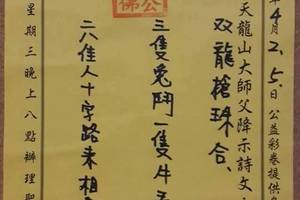 年4月2.5日公益彩卷提供
天龍山大師父降示詩文
双龍搶珠合.
三隻兔鬥一隻牛
二六佳人十字路來相
星期三晚上八點辦理聖